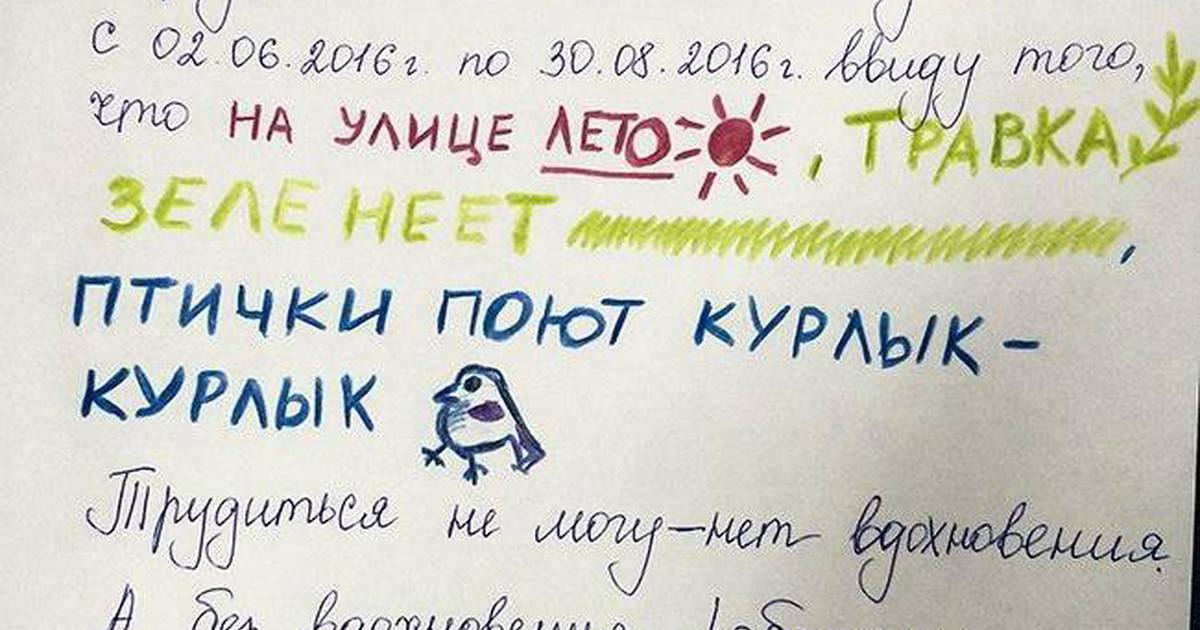 с 02.06.2016г. по 30.08.2016г. ввиду того,
что НА УЛИЦЕ ЛЕТО, ТРАВКА
ЗЕЛЕНЕЕТ,
ПТИЧКИ ПОЮТ КУРЛЫК-
КУРЛЫК
Трудиться не могу-нет вдохновения.
А без вдохновения